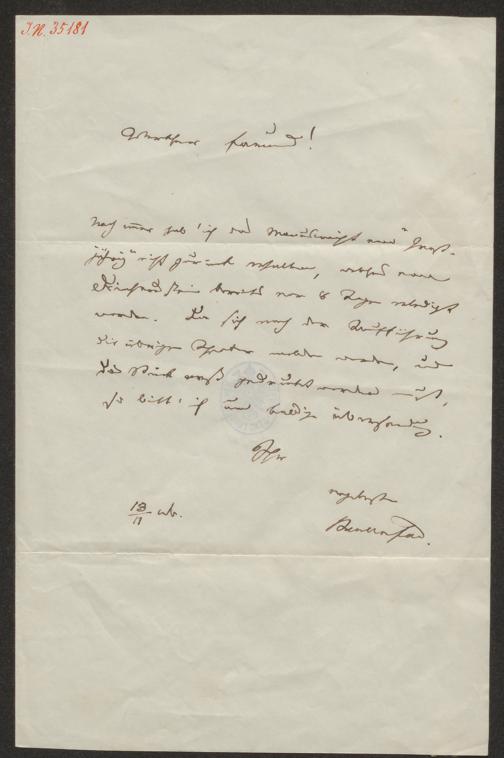 J.N. 35181
Werthester Freund!
Noch immer hab' ich das Manuscript von "
nicht zurück erhalten, welches vom
bereits vor 8 Tagen erledigt
worden. Da sich nach der Aufführung
die übrigen Theater melden werden, und
das Stück erst gedruckt werden muß,
so bitt' ich um baldige Übersendung.
Ihr
ergebenster
13/11
Bauernfeld.